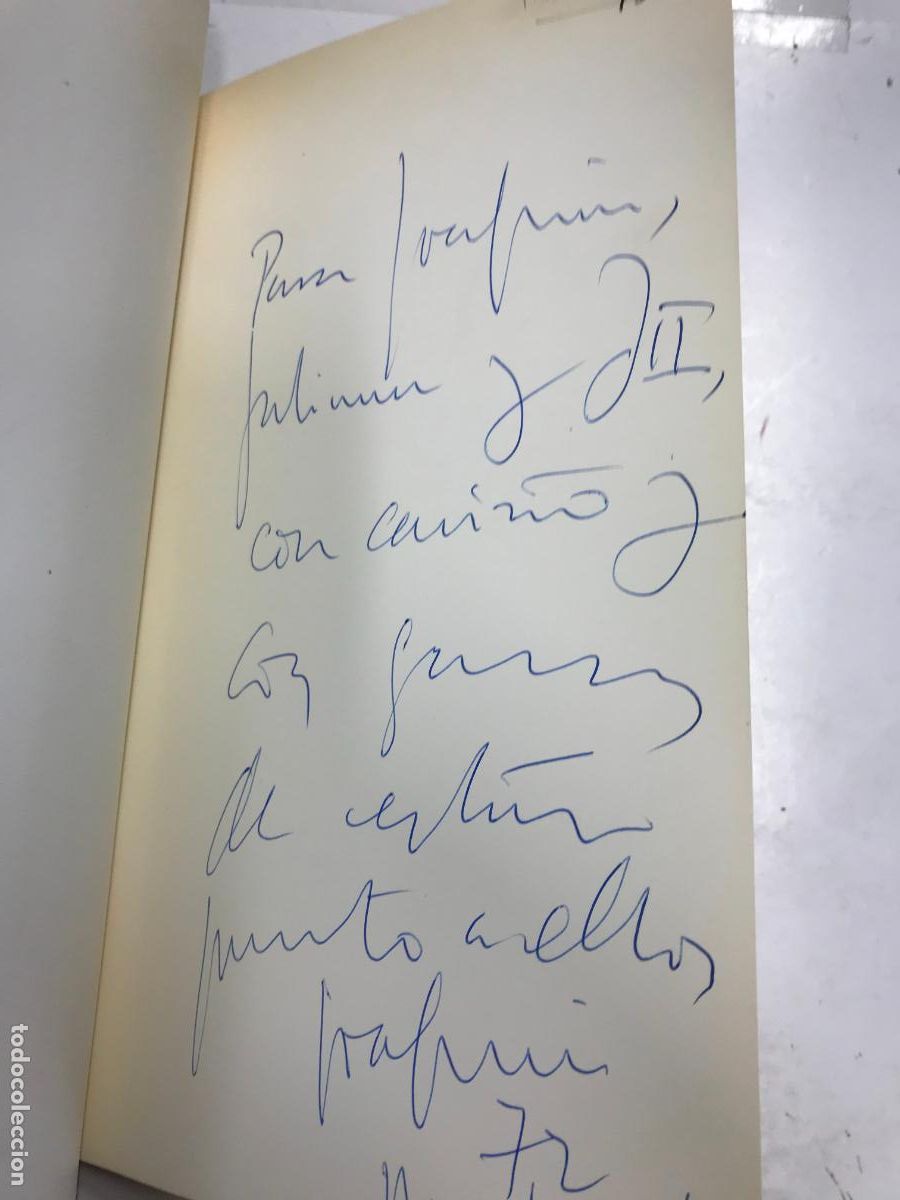 Para Joaquin,
Juliana y J II,
con cariño y
con ganas
de estar
junto a ellos
Joaquin
72
todocoleccion